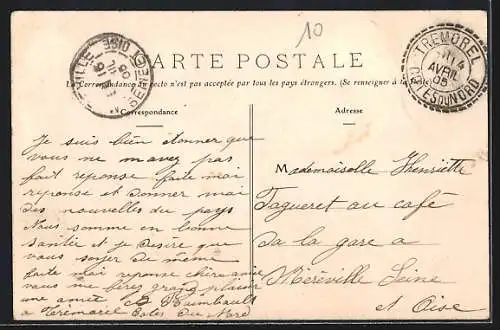 10
CARTE POSTALE
La Correspondance au recto n'est pas acceptée par tous les pays étrangers. (Se renseigner à la Poste)
Correspondance
Adresse
TREMOREL
14
AVRIL
08
COTES DU NORD
Je suis bien étonner que
vous ne mavez pas
fait reponse faite moi
reponse et donner moi
des nouvelles du pays
Nous somme en bonne
santée et je désire que
vous soyer de meme
faite moi reponse chère amie
vous me ferez grand plaisir
une amie Rumbault
a Trémorel Cotes Du Nord
Mademoiselle Henriette
Tagueret au café
da la gare a
Méréville Seine
et Oise